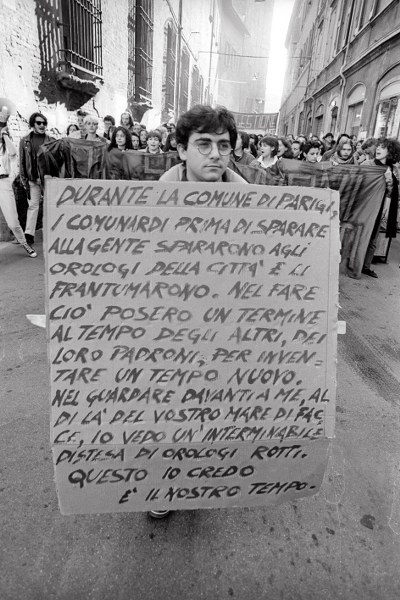 DURANTE LA COMUNE DI PARIGI,
I COMUNARDI PRIMA DI SPARARE
ALLA GENTE SPARARONO AGLI
OROLOGI DELLA CITTA' E LI
FRANTUMARONO. NEL FARE
CIO' POSERO UN TERMINE
AL TEMPO DEGLI ALTRI, DEI
LORO PADRONI, PER INVEN-
TARE UN TEMPO NUOVO.
NEL GUARDARE DAVANTI A ME, AL
DI LA' DEL VOSTRO MARE DI FAC-
CE, IO VEDO UN'INTERMINABILE
DISTESA DI OROLOGI ROTTI.
QUESTO IO CREDO
E' IL NOSTRO TEMPO.